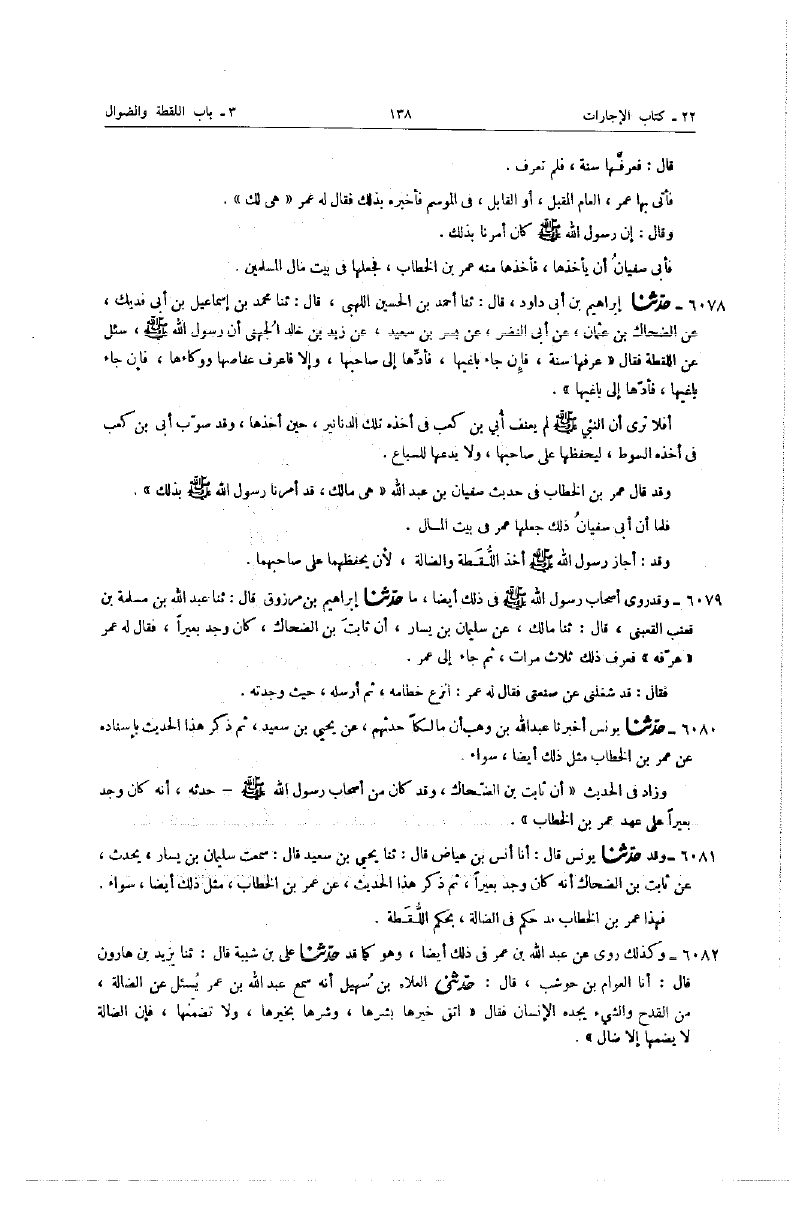 ٢٢ ـ كتاب الإجارات ١٣٨ ٣ ـ باب اللقطة والضوال
قال : فعرفّها سنة ، فلم تعرف .
فأتى بها عمر ، العام المقبل ، أو القابل ، فى الموسم فأخبره بذلك فقال له عمر « هى لك » .
وقال : إن رسول الله ﷺ كان أمرنا بذلك .
فأبى سفيانُ أن يأخذها ، فأخذها منه عمر بن الخطاب ، فجعلها فى بيت مال المسلمين .
٦٠٧٨ ـ حدّثنا إبراهيم بن أبى داود ، قال : ثنا أحمد بن الحسين اللهبى ، قال : ثنا محمد بن إسماعيل بن أبى فديك ،
عن الضحاك بن عثمان ، عن أبى النضر ، عن بسر بن سعيد ، عن زيد بن خالد الجهنى أن رسول الله ﷺ ، سئل
عن اللقطة فقال « عرفها سنة ، فإن جاء باغيها ، فأدِّها إلى صاحبها ، وإلا فاعرف عفاصها ووكاءها ، فإن جاء
باغيها ، فأدّها إلى باغيها » .
أفلا ترى أن النبي ﷺ لم يعنف أُبي بن كعب فى أخذه تلك الدنانير ، حين أخذها ، وقد صوّب أبى بن كعب
فى أخذه السوط ، ليحفظها على صاحبها ، ولا يدعها للسباع .
وقد قال عمر بن الخطاب فى حديث سفيان بن عبد الله « هى مالك ، قد أمرنا رسول الله ﷺ بذلك » .
فلما أن أبى سفيانُ ذلك جعلها عمر فى بيت المـال .
وقد : أجاز رسول الله ﷺ أخذ اللُّقَطة والضالة ، لأن يحفظهما على صاحبهما .
٦٠٧٩ ـ وقدروى أصحاب رسول الله ﷺ فى ذلك أيضا ، ما حدّثنا إبراهيم بن مرزوق قال : ثنا عبد الله بن مسلمة بن
قعنب القعنبى ، قال : ثنا مالك ، عن سليمان بن يسار ، أن ثابت بن الضحاك ، كان وجد بعيراً ، فقال له عمر
« عرّفه » فعرف ذلك ثلاث مرات ، ثم جاء إلى عمر .
فقال : قد شغلنى عن صنعتى فقال له عمر : انزع خطامه ، ثم أرسله ، حيث وجدته .
٦٠٨٠ ـ حدّثنا يونس أخبرنا عبدالله بن وهب أن مالكاً حدثهم ، عن يحيى بن سعيد ، ثم ذكر هذا الحديث بإسناده
عن عمر بن الخطاب مثل ذلك أيضا ، سواء .
وزاد فى الحديث « أن ثابت بن الضّحاك ، وقد كان من أصحاب رسول الله ﷺ – حدثه ، أنه كان وجد
بعيراً على عهد عمر بن الخطاب » .
٦٠٨١ ـ وقد حدّثنا يونس قال : أنا أنس بن عياض قال : ثنا يحيى بن سعيد قال : سمعت سليمان بن يسار ، يحدث ،
عن ثابت بن الضحاك أنه كان وجد بعيراً ، ثم ذكر هذا الحديث ، عن عمر بن الخطاب ، مثل ذلك أيضا ، سواء .
فهذا عمر بن الخطاب قد حكم فى الضالة ، بحكم اللُّقَطة .
٦٠٨٢ ـ وكذلك روى عن عبد الله بن عمر فى ذلك أيضا ، وهو كما قد حدّثنا على بن شيبة قال : ثنا يزيد بن هارون
قال : أنا العوام بن حوشب ، قال : حدّثنى العلاء بن سُهيل أنه سمع عبد الله بن عمر يُسئل عن الضالة ،
من القدح والشيء يجده الإنسان فقال « اتق خيرها بشرها ، وشرها بخيرها ، ولا تضمنّها ، فإن الضالة
لا يضمها إلا ضال » .